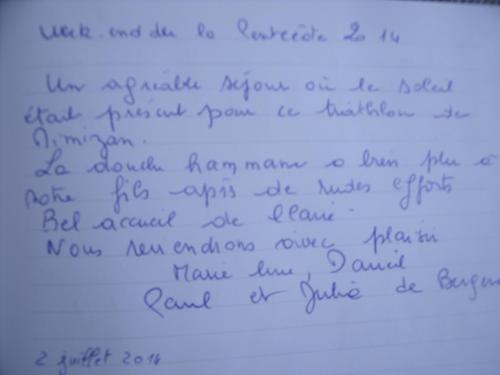 Week-end de la Pentecôte 2014
Un agréable séjour où le soleil
était présent pour ce triathlon de
Mimizan.
La douche hammam a bien plu à
notre fils après de rudes efforts
Bel accueil de
Nous reviendrons avec plaisir
Marie, Daniel
Paul et Julie de
2 juillet 2014